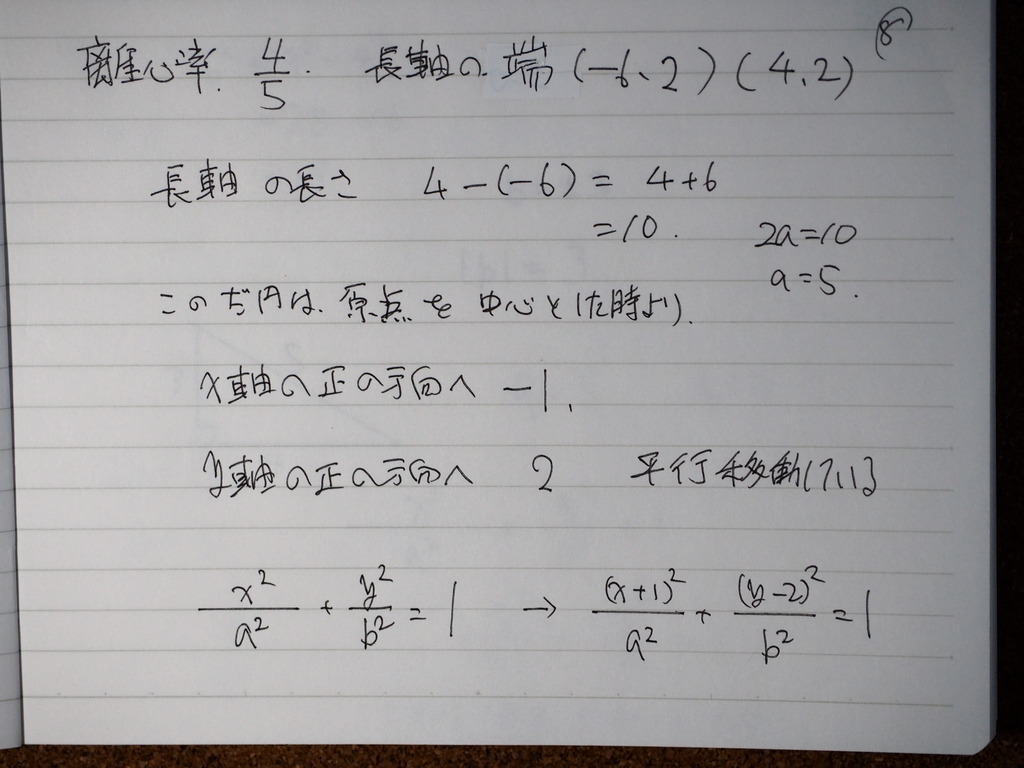 ⑧
離心率. 4/5. 長軸の端 (-6、2) (4、2)
長軸の長さ 4-(-6) = 4+6
=10. 2a=10
a=5.
このだ円は、原点を中心とした時より、
x軸の正の方向へ -1、
y軸の正の方向へ 2 平行移動している
x²/a² + y²/b² = 1 → (x+1)²/a² + (y-2)²/b² = 1